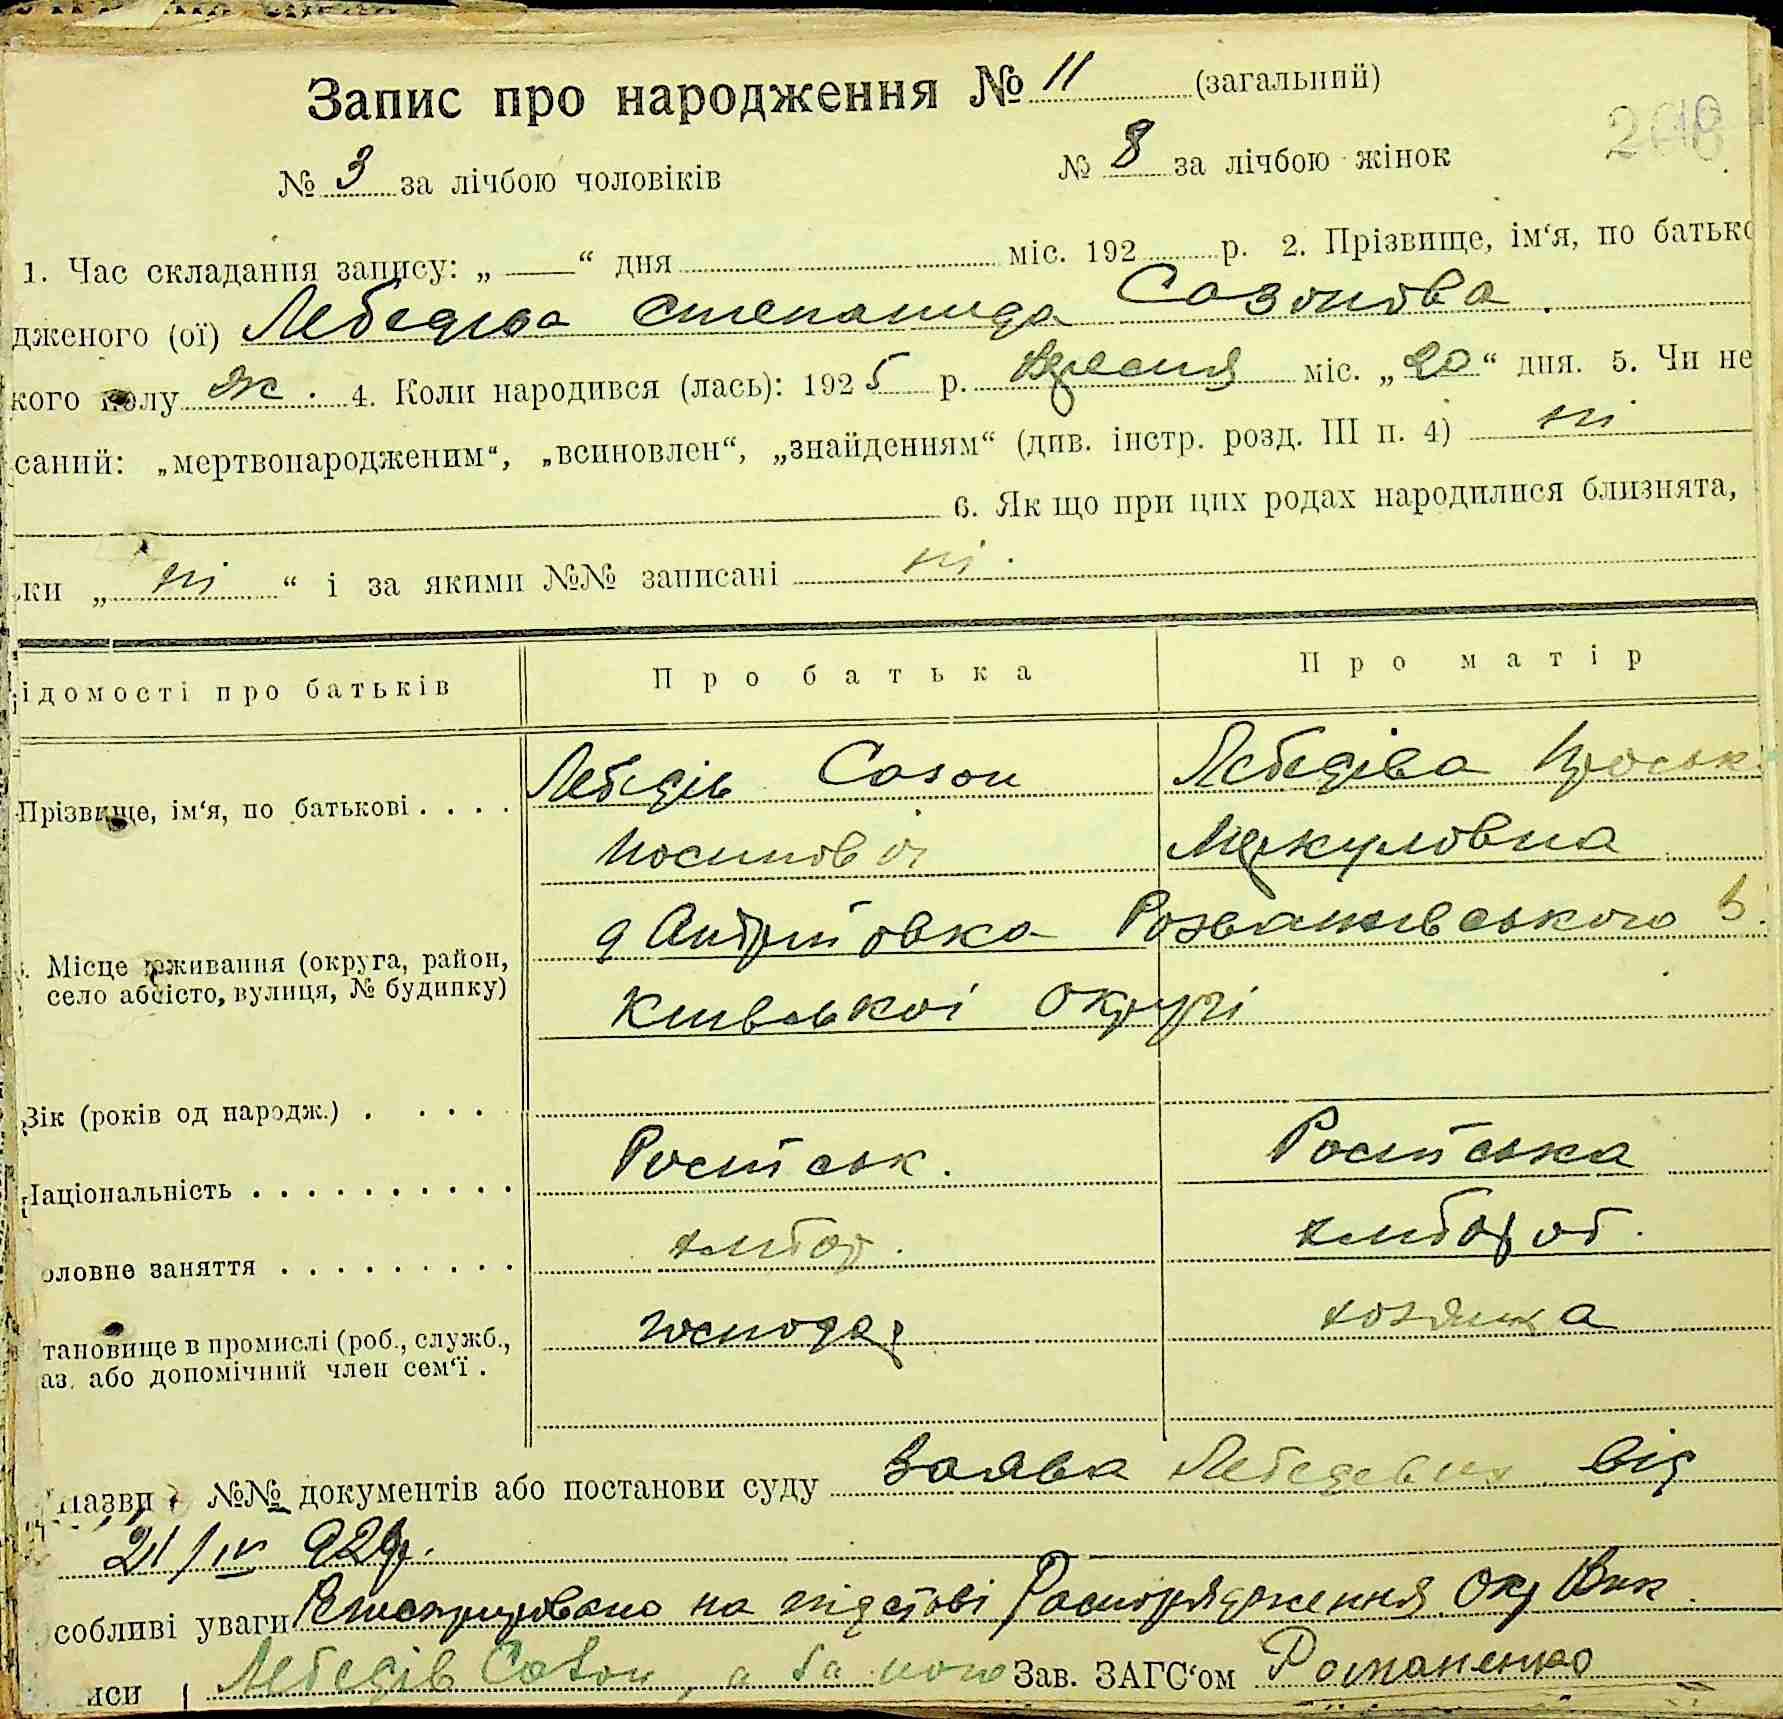 Запис про народження № 11 (загальний)
№ 3 за лічбою чоловіків № 8 за лічбою жінок
1. Час складання запису: „ — “ дня міс. 192 р. 2. Прізвище, ім‘я, по батько
дженого (ої) Лебедіва Степанида Сазонова.
кого полу ж. 4. Коли народився (лась): 1925 р. Вересня міс. „20“ дня. 5. Чи не
саний: „мертвонародженим“, „всиновлен“, „знайденням“ (див. інстр. розд. III п. 4) ні
6. Як що при цих родах народилися близнята,
ки „ ні “ і за якими №№ записані ні.
ідомості про батьків Про батька Про матір
Прізвище, ім‘я, по батькові . . . . Лебедів Сазон Лебедіва Проськ
Меркуловна
д Андріївка Розважівського
Місце живання (округа, район,
село або місто, вулиця, № будинку)
Київської Округи
Вік (років од народж.) . . . .
Національність . . . . . . . . . . Російськ. Російська
оловне заняття . . . . . . . . . хлібор. хлібороб.
тановище в промислі (роб., служб., господар хозяйка
аз. або допомічний член сем‘ї .
назви №№ документів або постанови суду Заява від
21/IV 926р.
собливі уваги на підставі Распорядження Окр Вик.
иси Лебедів Сазон, а за Зав. ЗАГС‘ом Романенко